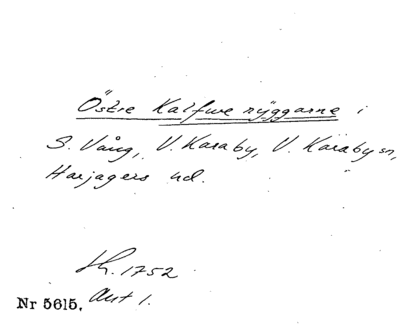 Östre Kalfwe ryggarne i
S. Vång, V. Karaby, V. Karaby sn,
Harjagers hd.
Sk. 1752
Nr 5615. Akt 1.